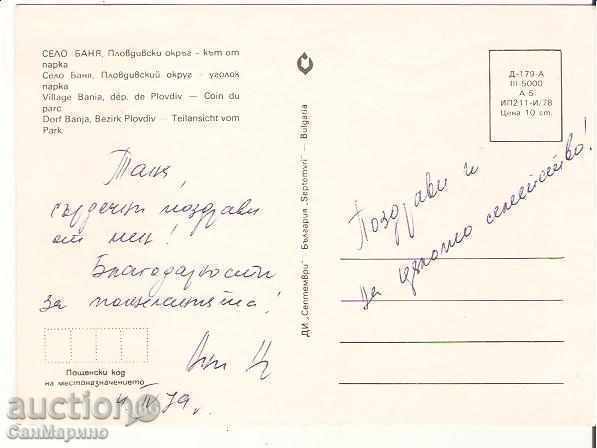 СЕЛО БАНЯ, Пловдивски окръг - кът от
парка
Село Баня, Пловдивский округ - уголок
парка
Village Bania, dép. de Plovdiv — Coin du
parc
Dorf Banja, Bezirk Plovdiv — Teilansicht vom
Park
Таня,
сърдечни поздрави
от мен!
Благодарности
за пожеланията!
Пощенски код
на местоназначението
ДИ „Септември" България „Septomvri" — Bulgaria
Д-179-А
III 5000
А 5
ИП211-И/78
Цена 10 ст.
Поздрави и
на цялото семейство!
auction
СанМарино